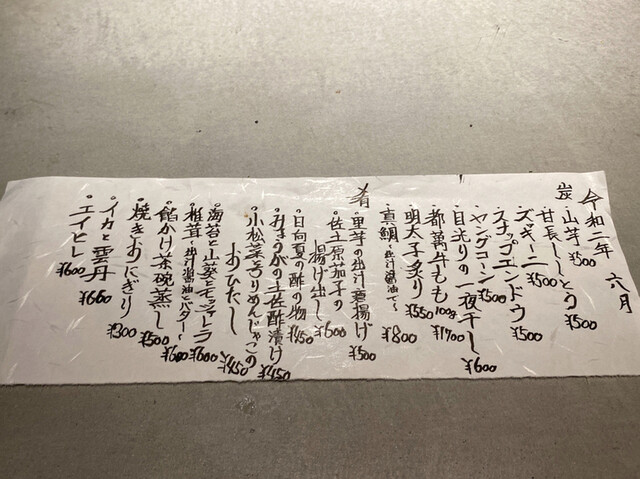 令和二年 六月
炭
・山芋 ¥500
・甘長ししとう ¥500
・ズッキーニ ¥500
・スナップエンドウ ¥500
・ヤングコーン ¥500
・目光りの一夜干し ¥600
・都萬牛もも 100g ¥1700
・明太子炙り ¥550
・真鯛 〜出汁醤油で〜 ¥800
肴
・里芋の出汁煮揚げ ¥500
・佐土原茄子の
揚げ出し ¥600
・日向夏の酢の物 ¥450
・みょうがの土佐酢漬け ¥450
・小松菜とちりめんじゃこの
おひたし ¥450
・海苔と山葵とモッツァレラ ¥600
・椎茸 〜出汁醤油とバター〜 ¥600
・餡かけ茶碗蒸し ¥500
・焼きおにぎり ¥300
・イカと雲丹 ¥660
・エイヒレ ¥600